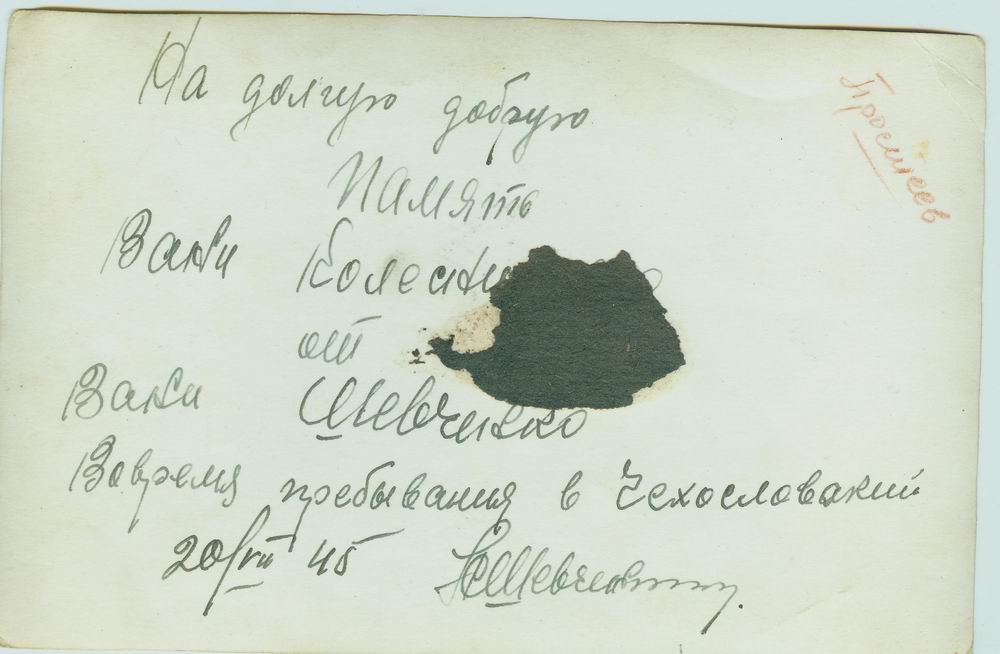 На долгую добрую
память
Вани
от
Вани Шевченко
Вовремя пребывания в Чехословакии
20/VII 45
Простеев